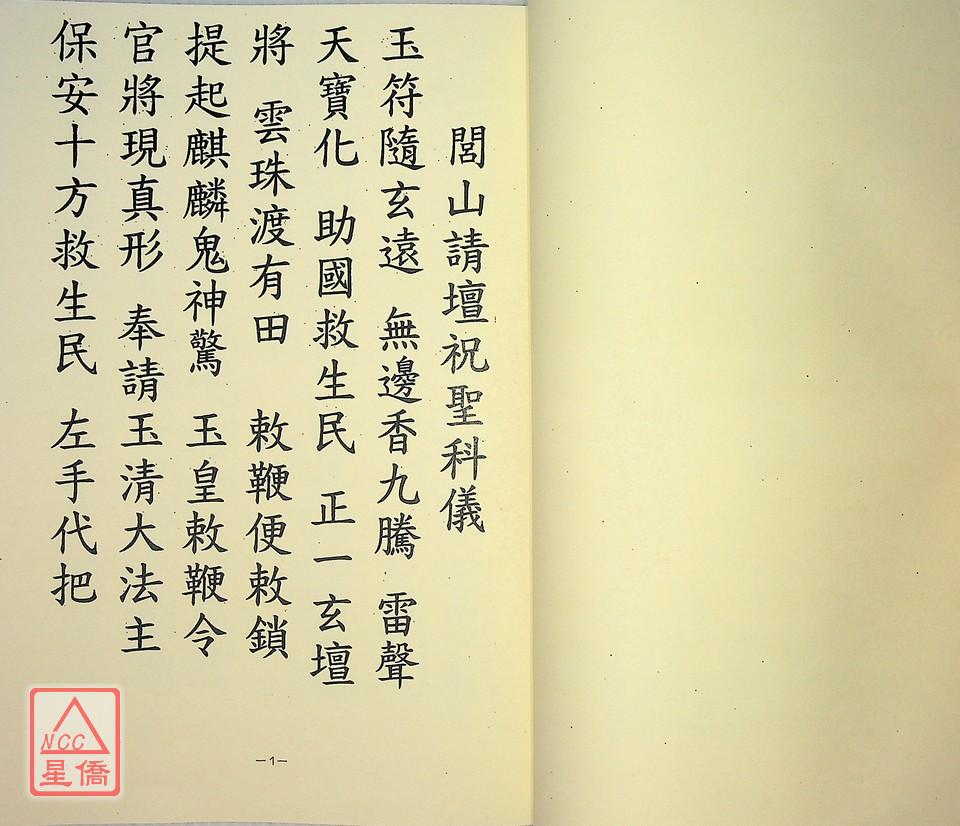 閭山請壇祝聖科儀
玉符隨玄遠　無邊香九騰　雷聲
天寶化　助國救生民　正一玄壇
將　雲珠渡有田　敕鞭便敕鎖
提起麒麟鬼神驚　玉皇敕鞭令
官將現真形　奉請玉清大法主
保安十方救生民　左手代把
—1—
NCC
星僑